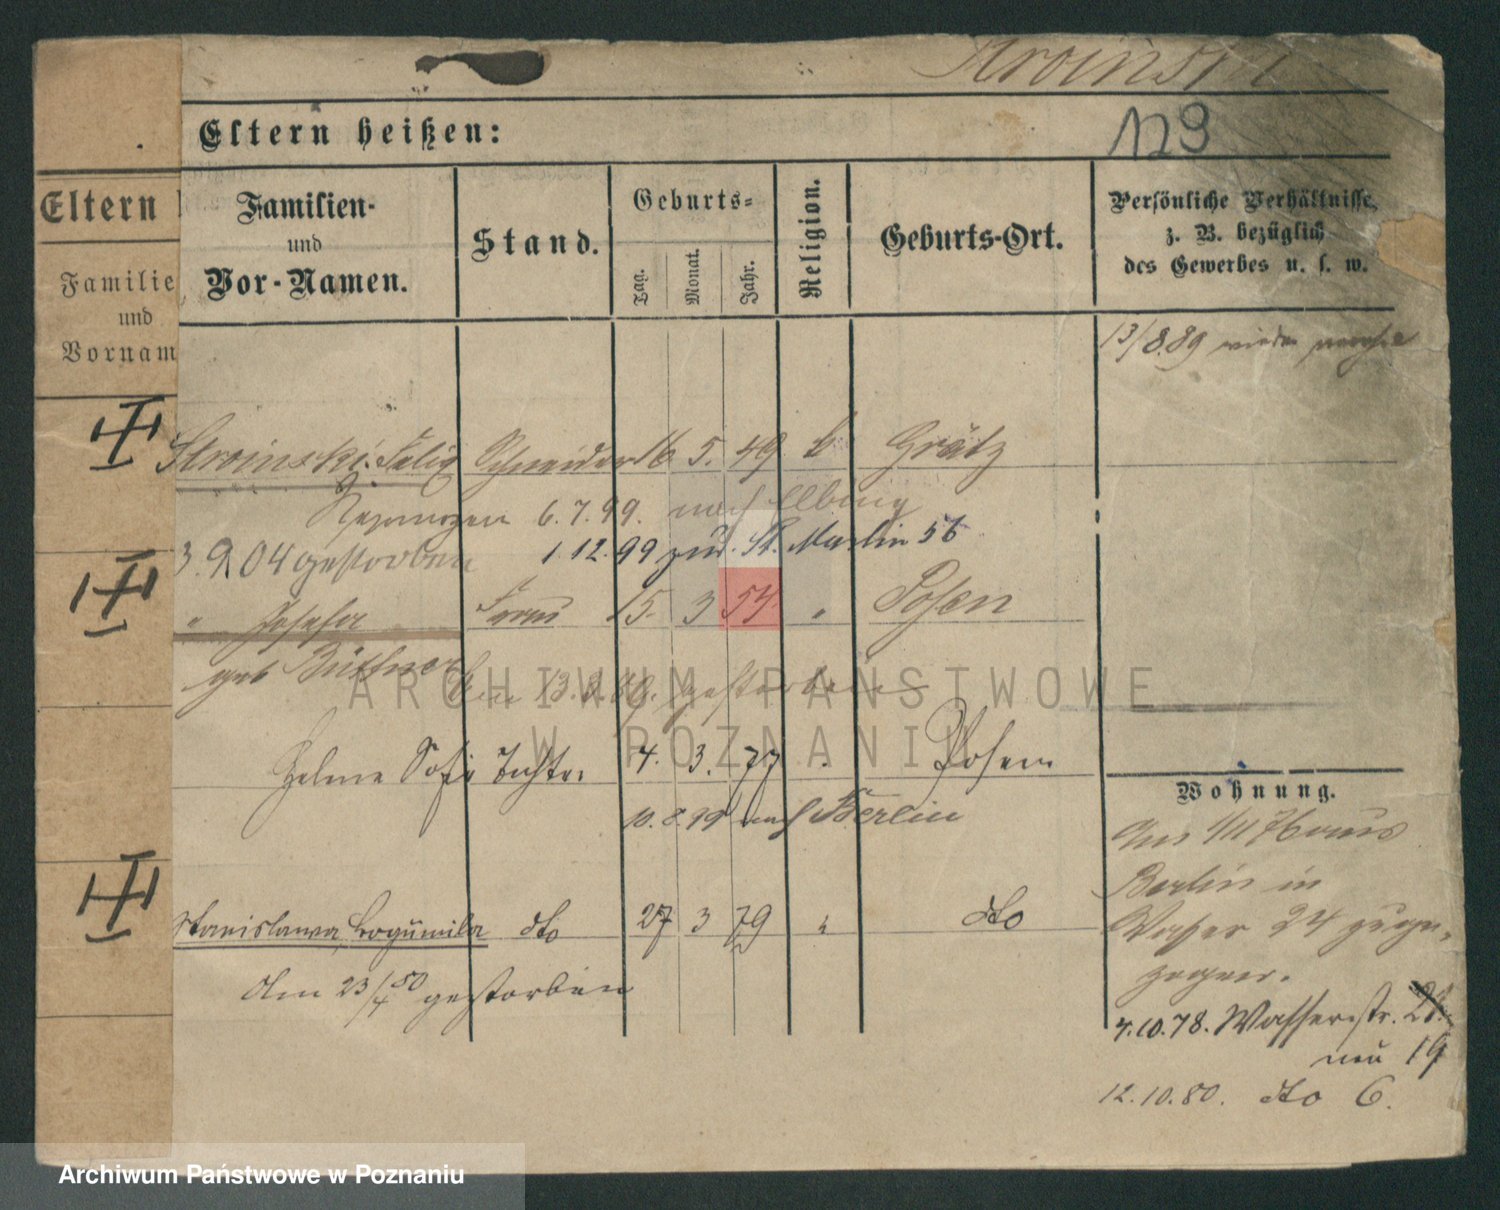 Stroinski
129
Eltern heißen:
Eltern
Familie
und
Vornam
Familien-
und
Vor-Namen.
Stand.
Geburts-
Tag.
Monat.
Jahr.
Religion.
Geburts-Ort.
Persönliche Verhältnisse,
z. B. bezüglich
des Gewerbes u. s. w.
13/8.89
Stroinski Felix Schneider 16 5. 49 k Grätz
6.7.99. nach Elbing
3.9.04 gestorben 1.12.99 zur. St. Martin 56
" Josefa Frau 15. 3 54 " Posen
geb Büttner
13.8.89. gestorben
Helene Sofie Tochter 4. 3. 77 " Posen
10.8.99 nach Berlin
Stanislawa, Bogumila dto 27 3 79 " dto
Am 23/4 80 gestorben
Wohnung.
Berlin in
Wasser 24 zuge-
zogen.
4.10.78. Wasserstr.
neu 19
12.10.80. dto 6.
ARCHIWUM PAŃSTWOWE
W POZNANIU
Archiwum Państwowe w Poznaniu